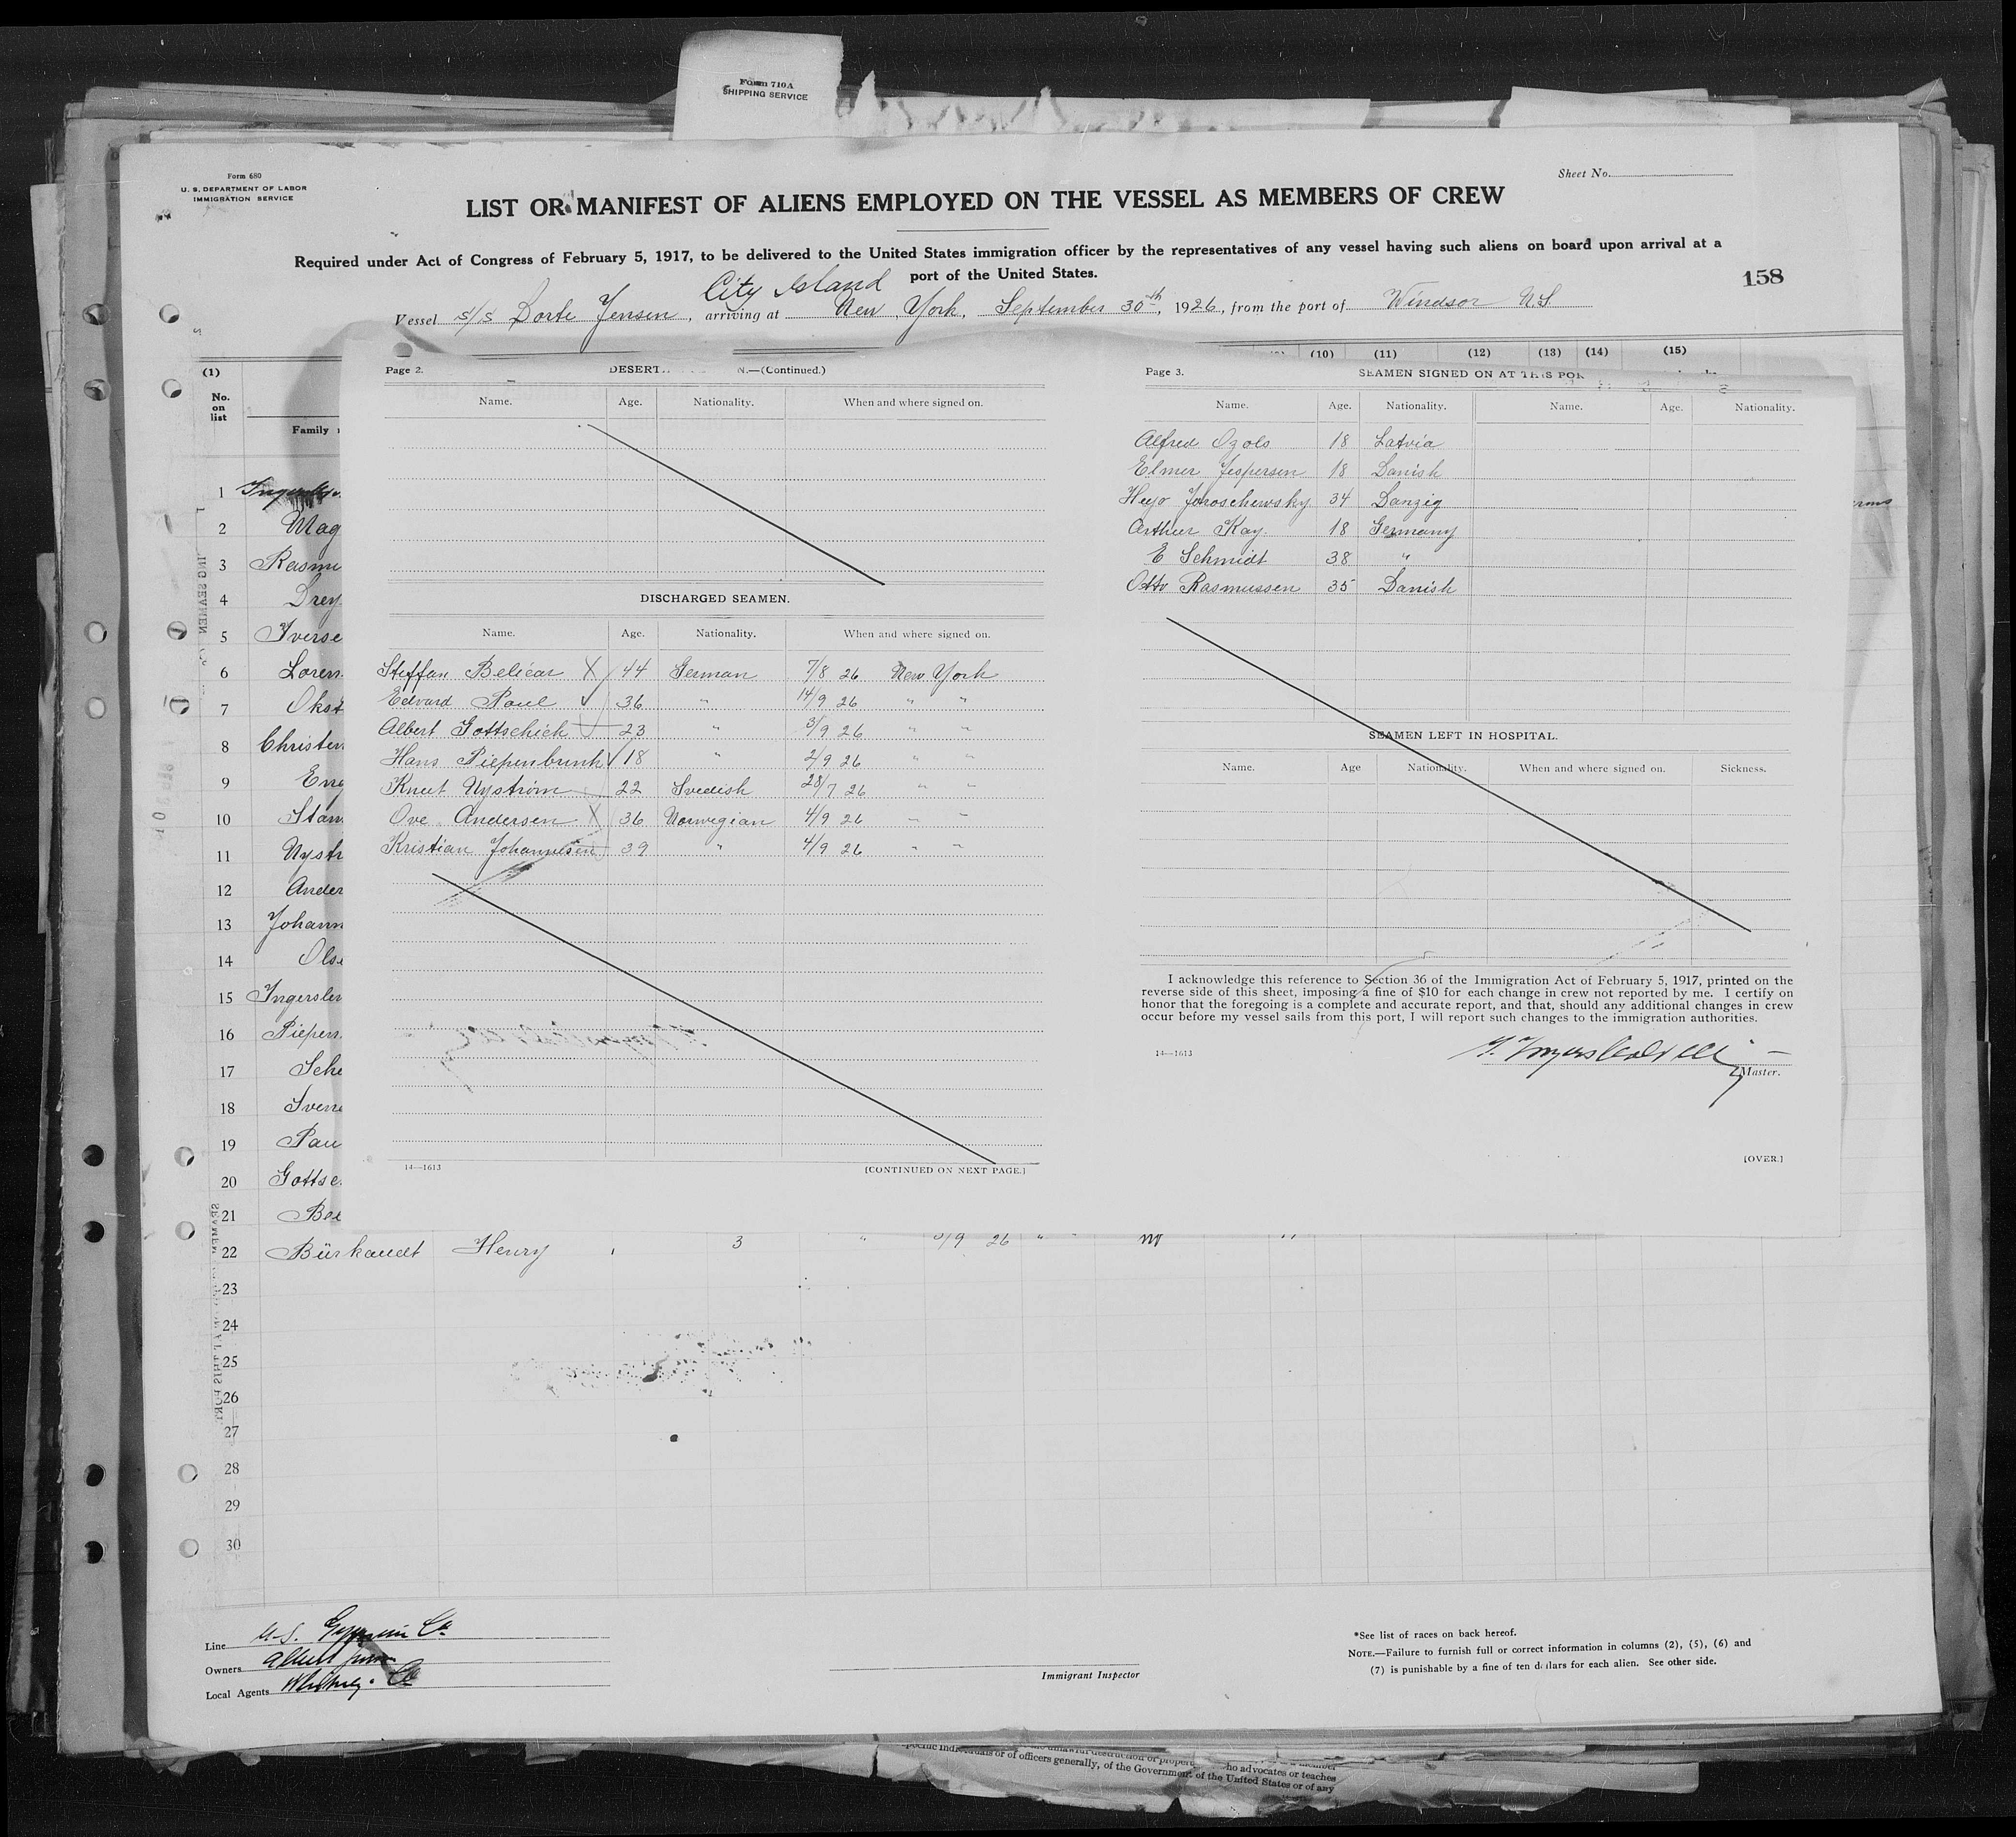 Form 710A
SHIPPING SERVICE
Form 680
U. S. DEPARTMENT OF LABOR
IMMIGRATION SERVICE
Sheet No.
LIST OR MANIFEST OF ALIENS EMPLOYED ON THE VESSEL AS MEMBERS OF CREW
Required under Act of Congress of February 5, 1917, to be delivered to the United States immigration officer by the representatives of any vessel having such aliens on board upon arrival at a
port of the United States.
158
City Island
Vessel S/S Dorte Jensen, arriving at New York, September 30th, 1926, from the port of Windsor N.S
(10) (11) (12) (13) (14) (15)
(1)
No. on list
Family
1
2 Mag
3 Rasmu
4 Drey
5 Iverse
6 Loren
7 Okst
8 Christen
9 Eng
10 Stam
11 Nystr
12 Ander
13 Johann
14 Olse
15 Ingersle
16 Piepen
17 Sche
18 Sven
19 Pau
20 Gottsc
21 Bel
22 Bürkandt Henry 3 " /9 26 " " no "
23
24
25
26
27
28
29
30
Page 2. DESERT N.—(Continued.)
Name. Age. Nationality. When and where signed on.
DISCHARGED SEAMEN.
Name. Age. Nationality. When and where signed on.
Steffan Belicar X 44 German 7/8 26 New York
Edvard Paul 36 " 14/9 26 " "
Albert Gottschick 23 " 3/9 26 " "
Hans Piepenbrink 18 " 2/9 26 " "
Knut Nystrøm 22 Svedish 28/7 26 " "
Ove Andersen X 36 Norwegian 4/9 26 " "
Kristian Johannesen 39 " 4/9 26 " "
14—1613 [CONTINUED ON NEXT PAGE.]
Page 3. SEAMEN SIGNED ON AT THIS POR
Name. Age. Nationality. Name. Age. Nationality.
Alfred Ozols 18 Latvia
Elmer Jespersen 18 Danish
Hugo Joroschewsky 34 Danzig
Arthur Kay. 18 Germany
E Schmidt 38 "
Otto Rasmussen 35 Danish
SEAMEN LEFT IN HOSPITAL.
Name. Age Nationality. When and where signed on. Sickness.
I acknowledge this reference to Section 36 of the Immigration Act of February 5, 1917, printed on the
reverse side of this sheet, imposing a fine of $10 for each change in crew not reported by me. I certify on
honor that the foregoing is a complete and accurate report, and that, should any additional changes in crew
occur before my vessel sails from this port, I will report such changes to the immigration authorities.
14—1613
Master.
[OVER.]
Line U.S. Gypsum Co.
Owners Albert Jensen
Local Agents Whitney. Co
Immigrant Inspector
*See list of races on back hereof.
NOTE.—Failure to furnish full or correct information in columns (2), (5), (6) and
(7) is punishable by a fine of ten dollars for each alien. See other side.
ho advocates or teaches
or of officers generally, of the Government of the United States or of any